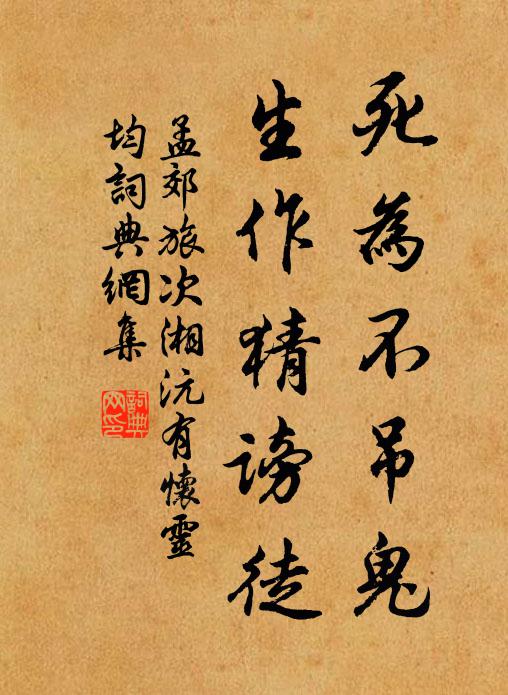 死為不吊鬼
生作猜謗徒
孟郊旅次湘沅有懷靈
均詞典網集
詞典
网印